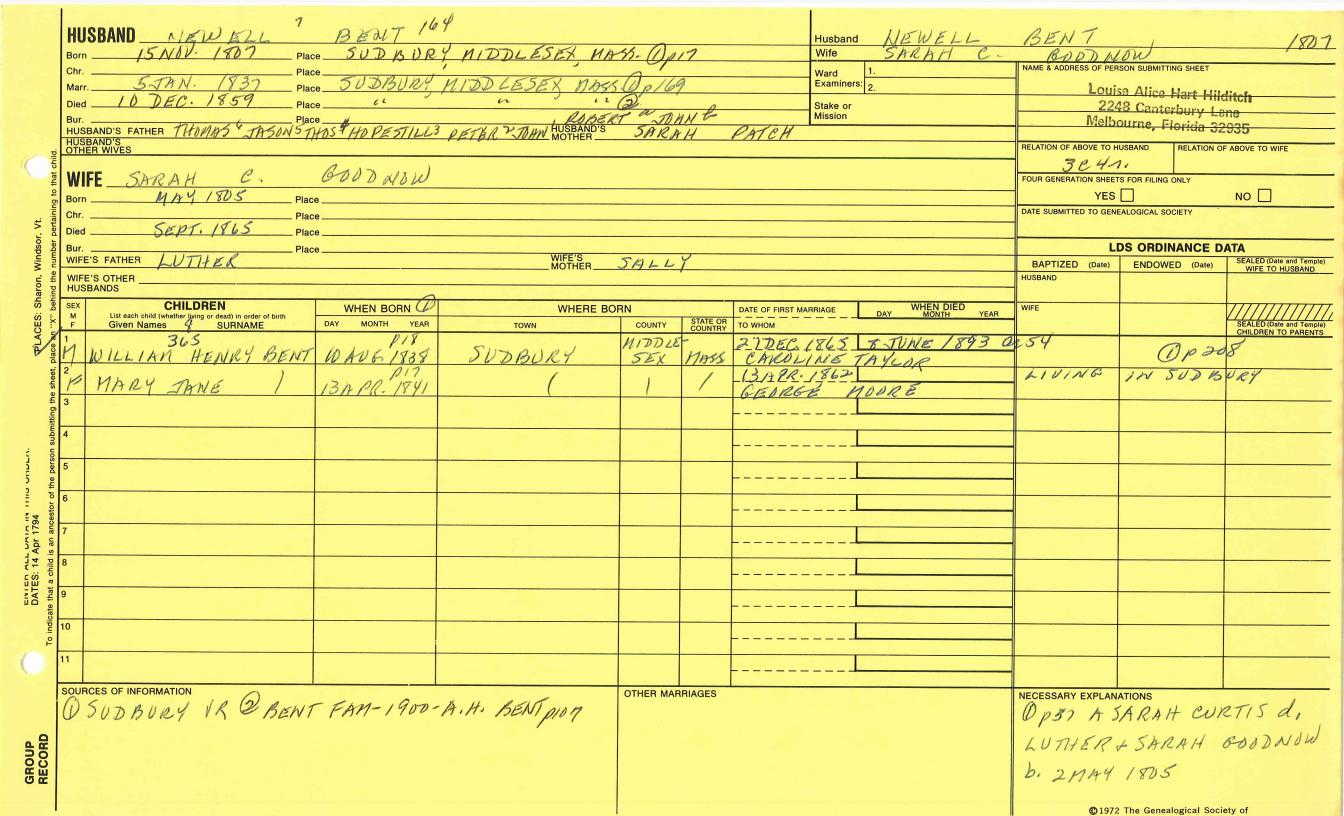 HUSBAND NEWELL 7 BENT 164
Born 15 NOV. 1807 Place SUDBURY, MIDDLESEX, MASS. ① p17
Chr. Place
Marr. 5 JAN. 1837 Place SUDBURY, MIDDLESEX, MASS ① p169
Died 10 DEC. 1859 Place " " " ②
Bur. Place ROBERT a JOHN b
HUSBAND'S FATHER THOMAS 6 JASON 5 THOS 4 HOPESTILL 3 PETER 2 JOHN HUSBAND'S MOTHER SARAH PATCH
HUSBAND'S OTHER WIVES
Husband NEWELL BENT 1807
Wife SARAH C. GOODNOW
Ward Examiners: 1.
2.
Stake or Mission
NAME & ADDRESS OF PERSON SUBMITTING SHEET
Louisa Alice Hart Hilditch
2248 Canterbury Lane
Melbourne, Florida 32935
RELATION OF ABOVE TO HUSBAND RELATION OF ABOVE TO WIFE
3C4r.
FOUR GENERATION SHEETS FOR FILING ONLY
YES NO
DATE SUBMITTED TO GENEALOGICAL SOCIETY
WIFE SARAH C. GOODNOW
Born MAY 1805 Place
Chr. Place
Died SEPT. 1865 Place
Bur. Place
WIFE'S FATHER LUTHER WIFE'S MOTHER SALLY
WIFE'S OTHER HUSBANDS
LDS ORDINANCE DATA
BAPTIZED (Date) ENDOWED (Date) SEALED (Date and Temple) WIFE TO HUSBAND
HUSBAND
WIFE
SEALED (Date and Temple) CHILDREN TO PARENTS
SEX M F
CHILDREN
List each child (whether living or dead) in order of birth
Given Names 8 SURNAME
WHEN BORN ①
DAY MONTH YEAR
WHERE BORN
TOWN COUNTY STATE OR COUNTRY
DATE OF FIRST MARRIAGE
TO WHOM
WHEN DIED
DAY MONTH YEAR
1 365 p18 MIDDLE- 27 DEC. 1865 JUNE 1893 a 54
M WILLIAM HENRY BENT 10 AUG 1838 SUDBURY SEX MASS CAROLINE TAYLOR ① p208
2 p17 13 APR. 1862 LIVING IN SUDBURY
F MARY JANE ) 13 APR. 1841 ( | / GEORGE MOORE
3
4
5
6
7
8
9
10
11
SOURCES OF INFORMATION
① SUDBURY VR ② BENT FAM-1900-A.H. BENT p107
OTHER MARRIAGES
NECESSARY EXPLANATIONS
① p57 A SARAH CURTIS d.
LUTHER & SARAH GOODNOW
b. 2 MAY 1805
©1972 The Genealogical Society of
PLACES: Sharon, Windsor, Vt.
To indicate that a child is an ancestor of the person submitting the sheet, place an "X" behind the number pertaining to that child.
ENTER ALL DATA IN THIS ORDER:
DATES: 14 Apr 1794
GROUP RECORD